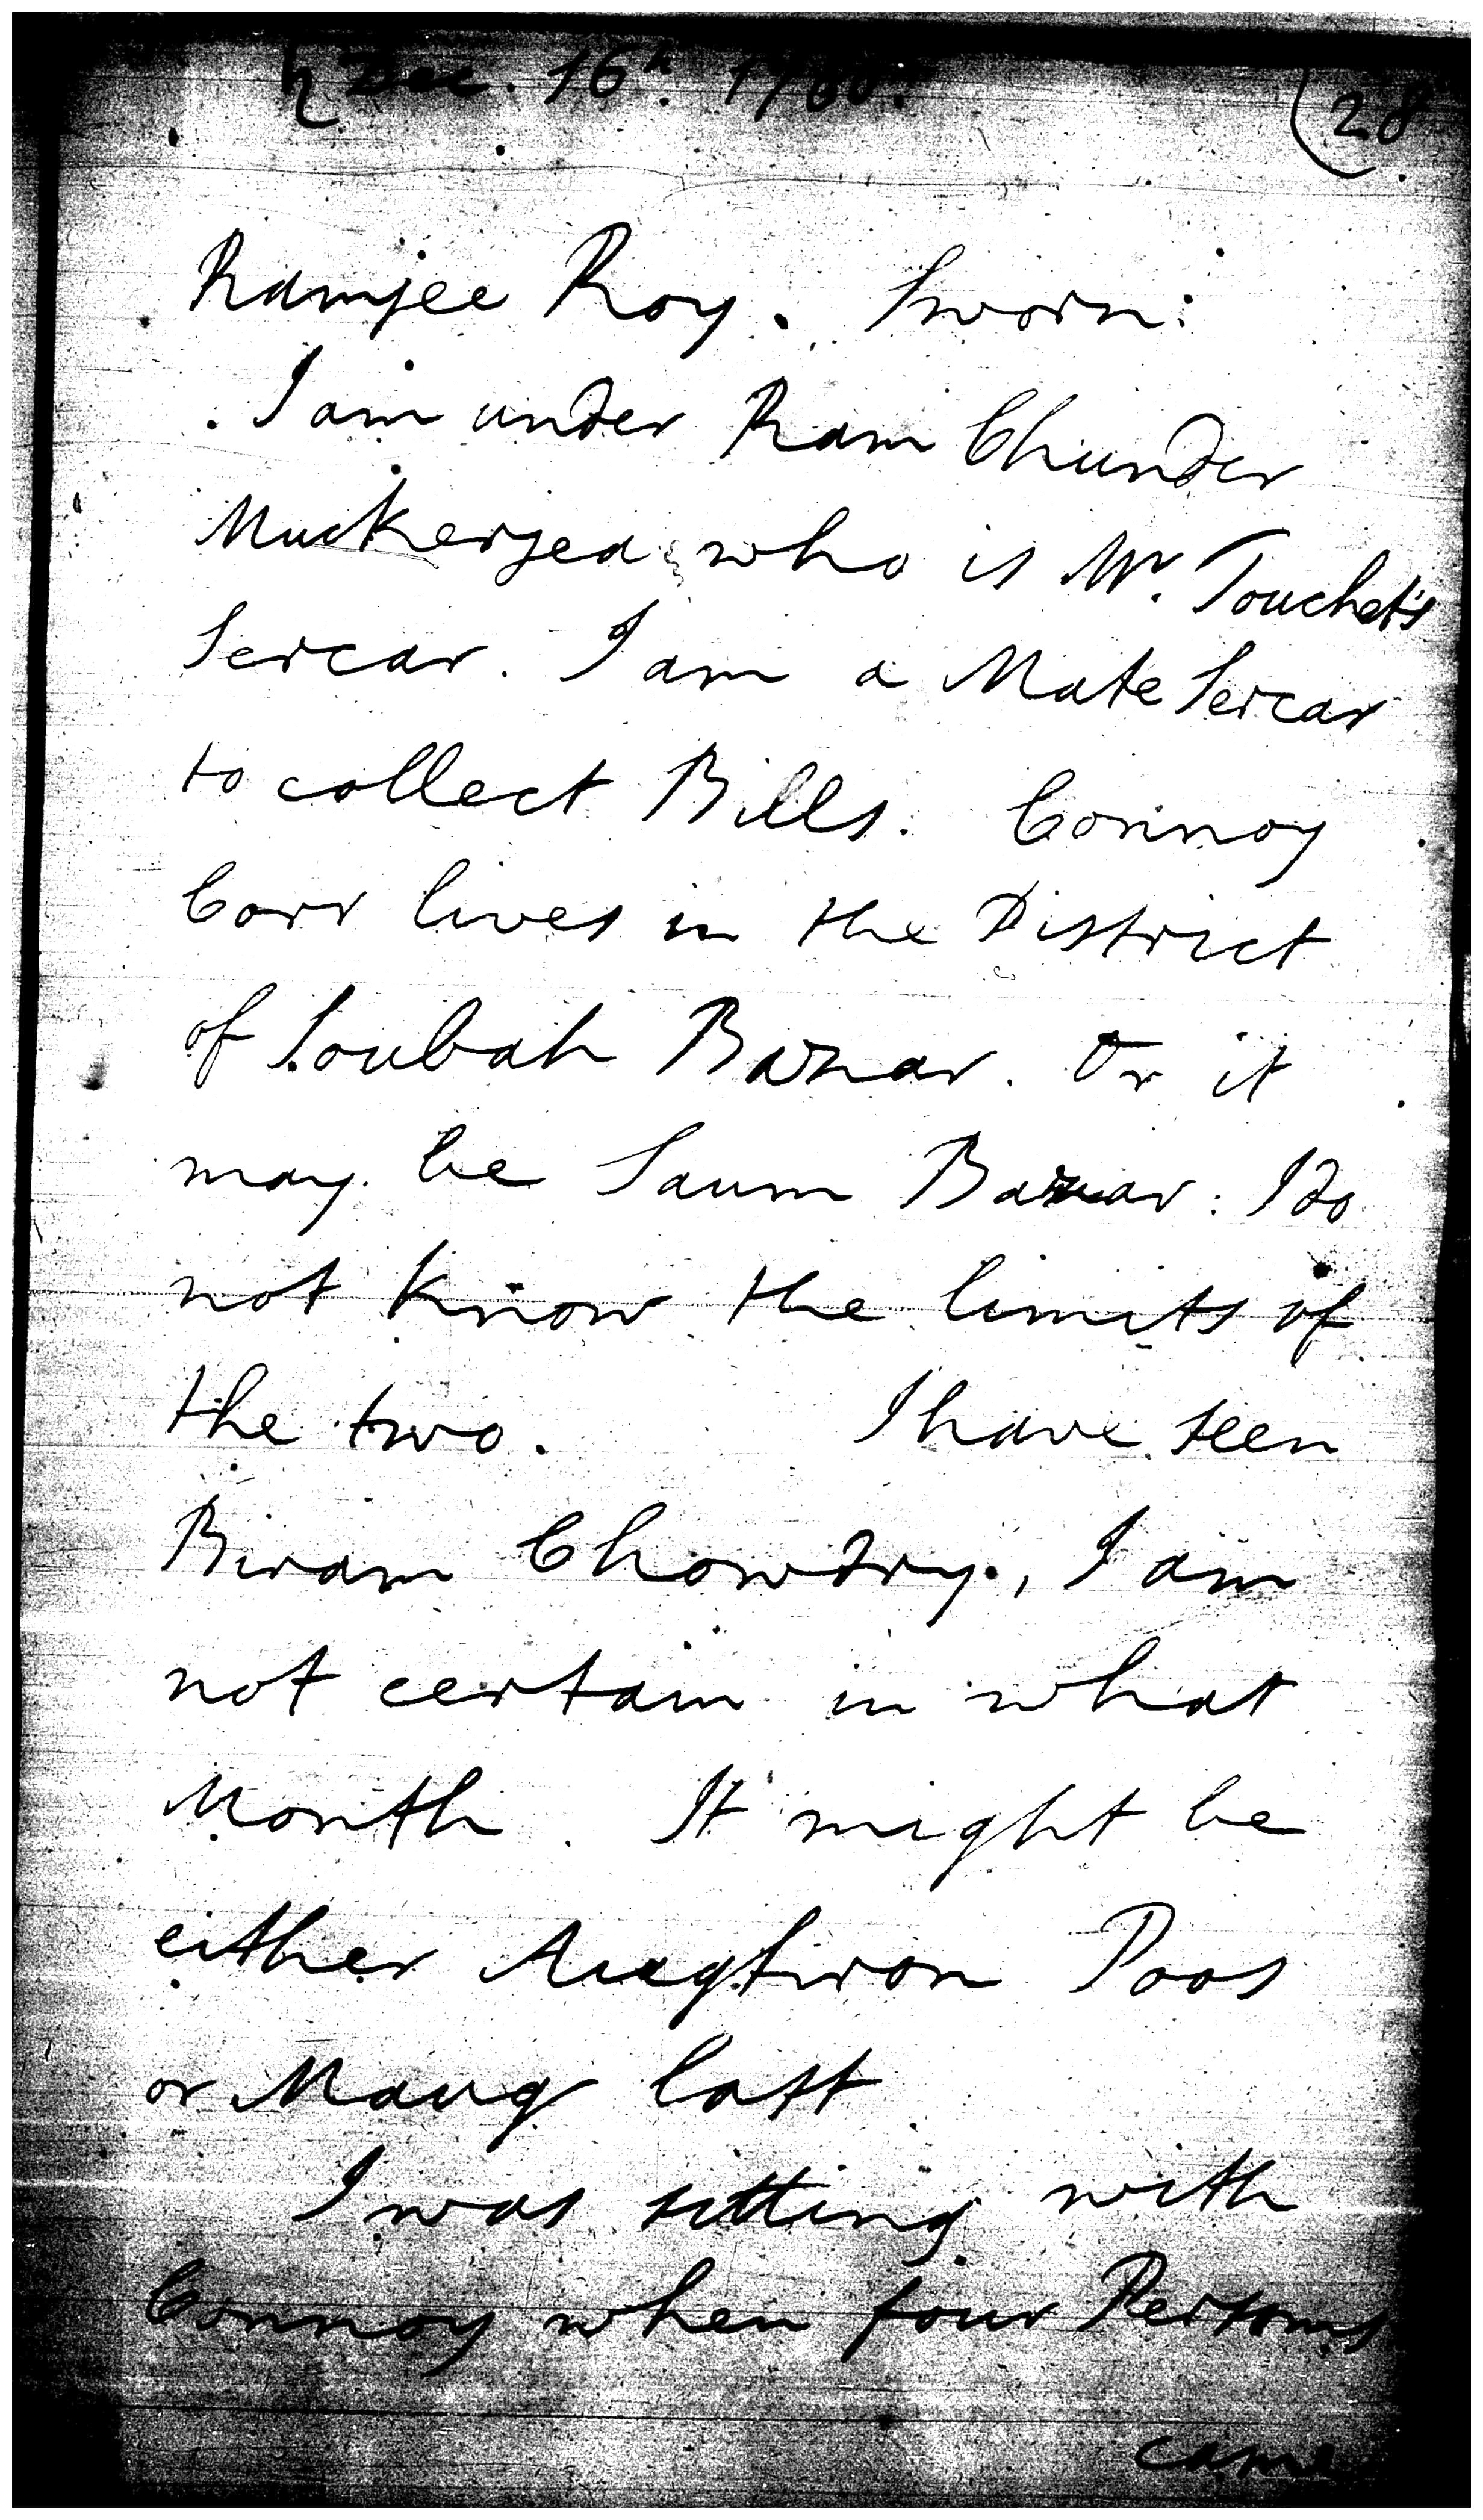 ♄ Dec. 16th. 1780.
(28
Ramjee Roy. Sworn:
I am under Ram Chunder
Muckerjea who is Mr. Touchet's
Sercar. I am a Mate Sercar
to collect Bills. Connoy
Corr lives in the District
of Soubah Bazar. Or it
may be Saum Bazar: I do
not know the limits of
the two. I have seen
Biram Chowdry., I am
not certain in what
Month. It might be
either Aughron Poos
or Maug last
I was sitting with
Connoy when four Persons
came